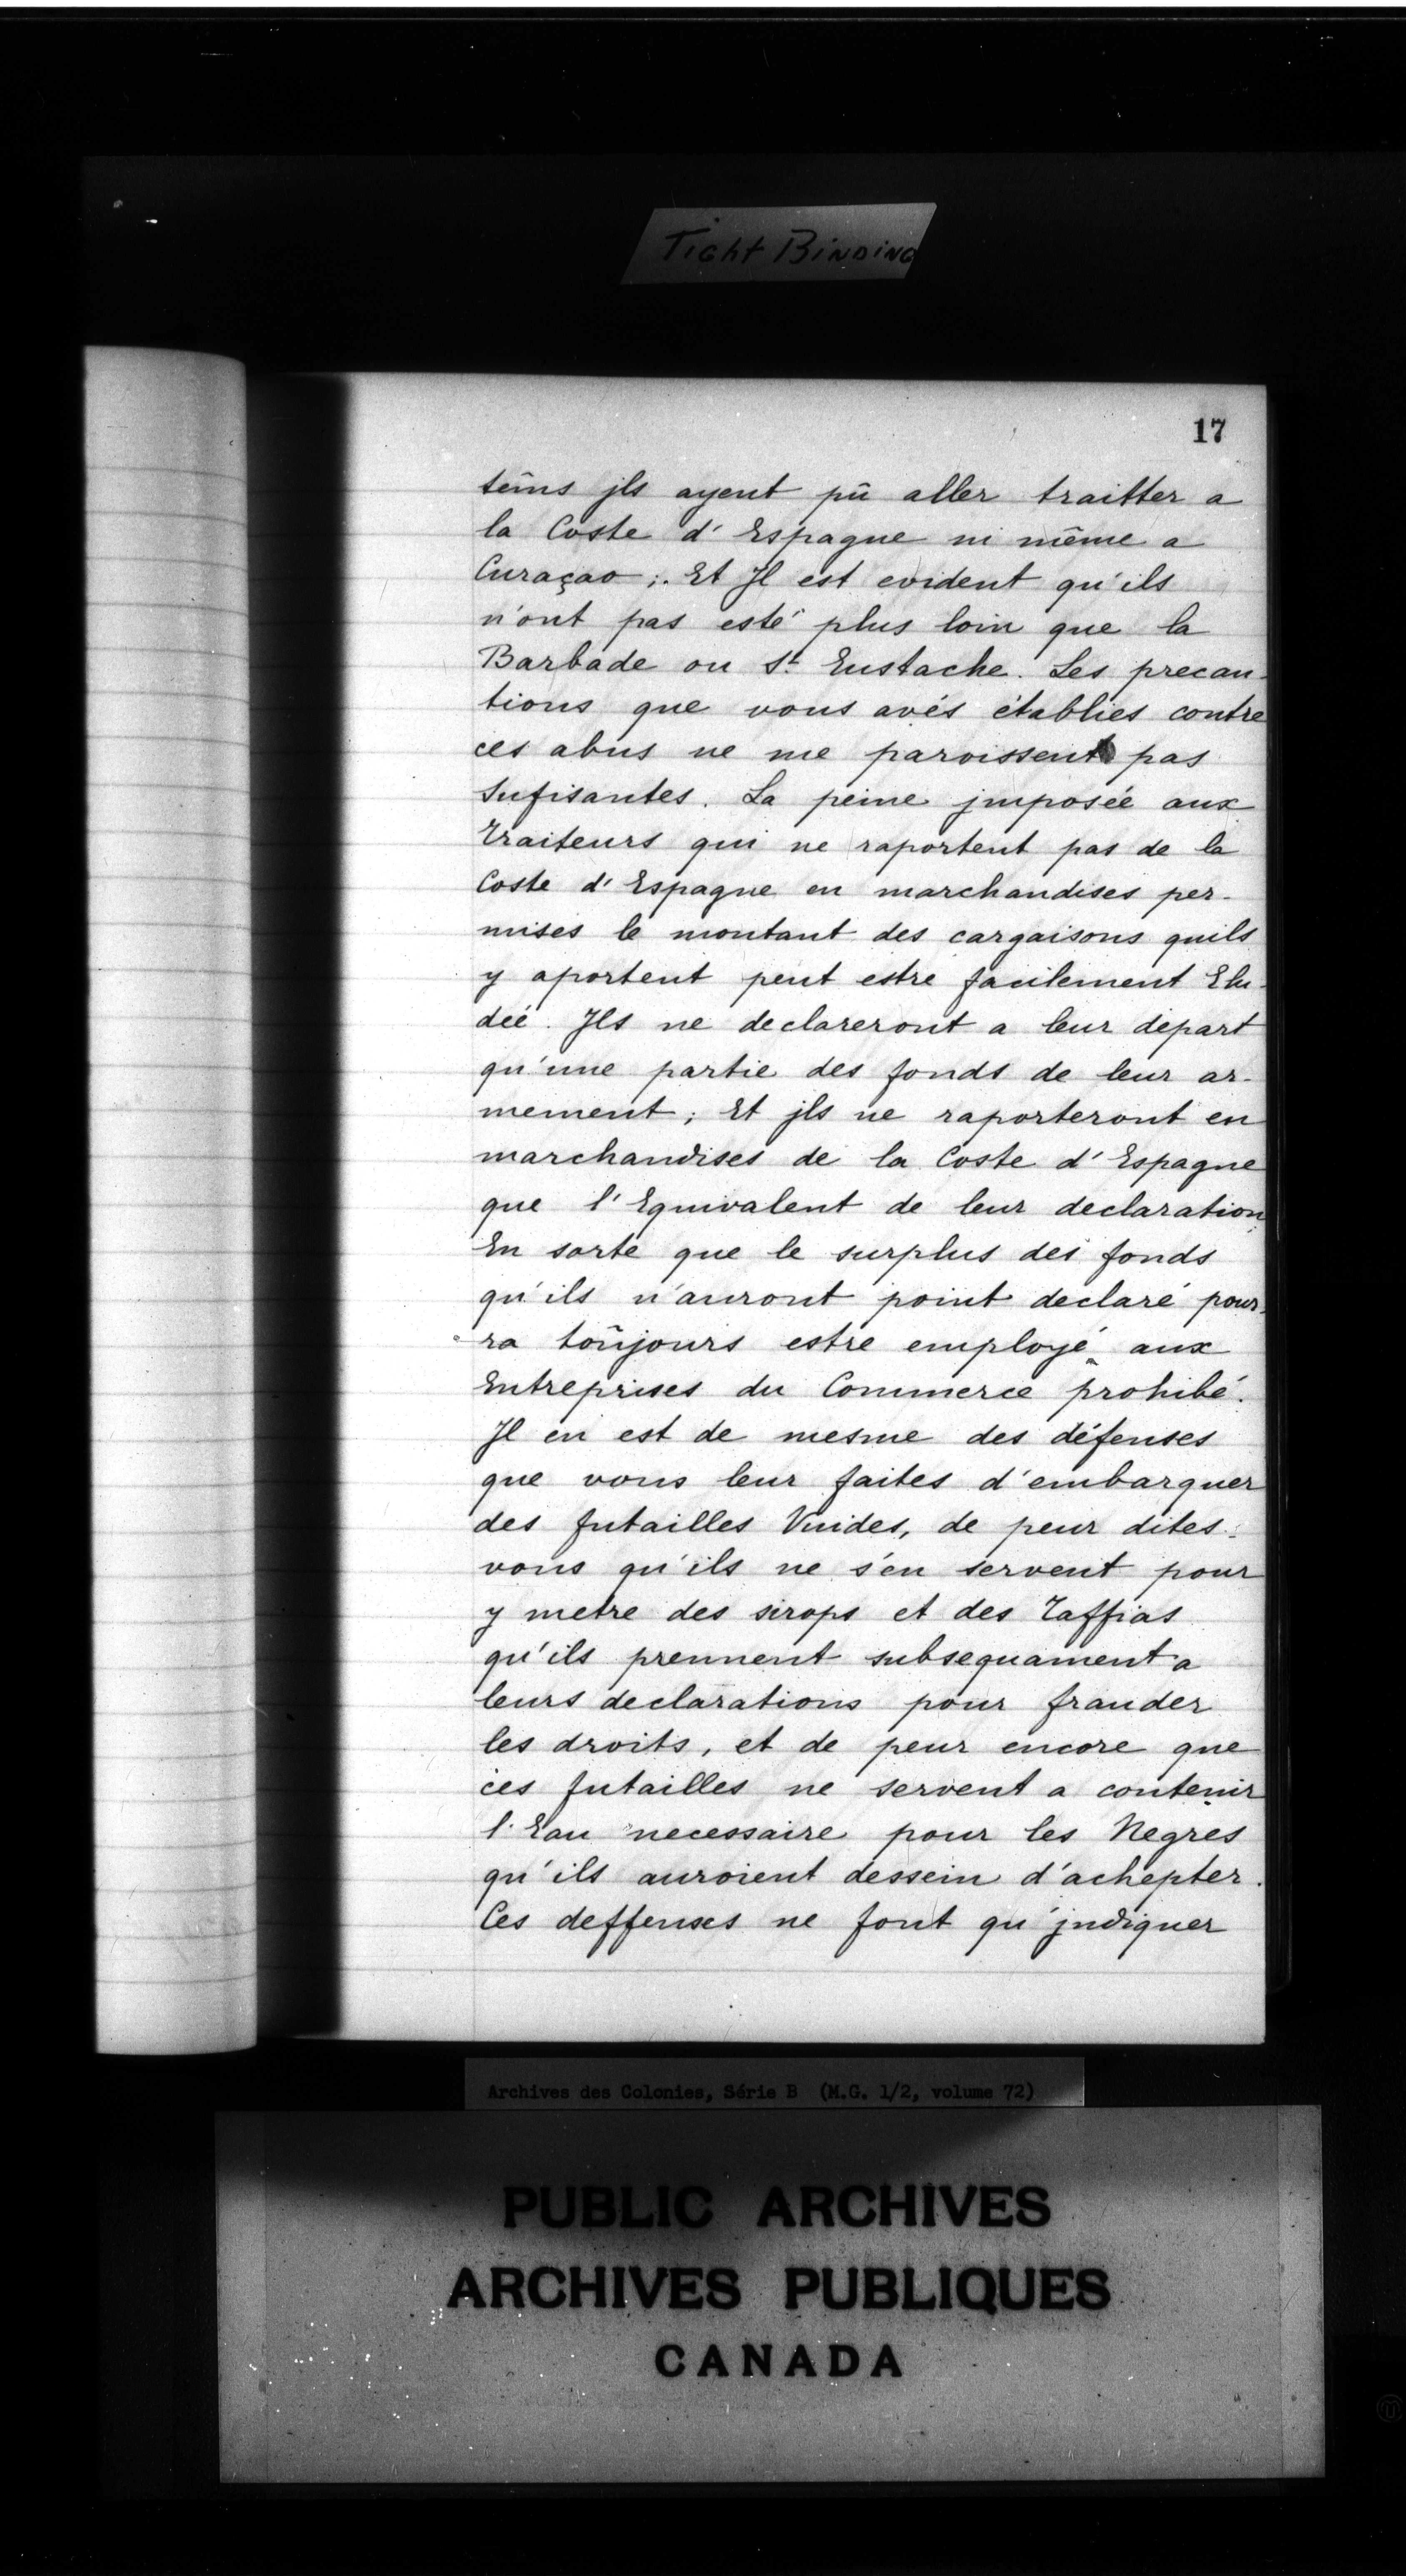 Tight Binding
17
têms jls ayent pû aller traitter a
la Coste d'Espagne ni même a
Curaçao ;. Et Jl est evident qu'ils
n'ont pas esté plus loin que la
Barbade ou St Eustache. Les precau-
tions que vous avés établies contre
ces abus ne me paroissent pas
sufisantes. La peine jmposée aux
traiteurs qui ne raportent pas de la
Coste d'Espagne en marchandises per-
mises le montant des cargaisons quils
y aportent peut estre facilement Elu-
dée. Jls ne declareront a leur départ
qu'une partie des fonds de leur ar-
mement ; Et jls ne raporteront en
marchandises de la Coste d'Espagne
que l'Equivalent de leur declaration;
En sorte que le surplus des fonds
qu'ils n'auront point declaré pour-
ra toûjours estre employé aux
Entreprises du Commerce prohibé.
Jl en est de mesme des défenses
que vous leur faites d'embarquer
des futailles Vuides, de peur dites-
vous qu'ils ne s'en servent pour
y metre des sirops et des Taffias
qu'ils prennent subsequament a
leurs declarations pour frauder
les droits, et de peur encore que
ces futailles ne servent a contenir
l'Eau necessaire pour les Negres
qu'ils auroient dessein d'achepter.
Ces deffenses ne font qu'jndiquer
Archives des Colonies, Série B (M.G. 1/2, volume 72)
PUBLIC ARCHIVES
ARCHIVES PUBLIQUES
CANADA